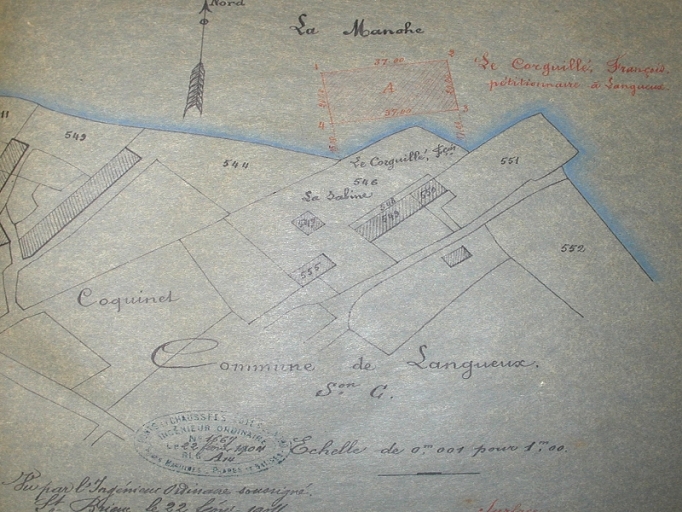 Nord
La Manche
1
2
37.00
A
37.00
4
3
Le Corguillé, François,
pétitionnaire à Langueux
543
544
Le Corguillé, Fçois
546
551
La Sabine
547
548
549
550
552
555
Coquinet
Commune de Langueux.
Son G.
PONTS & CHAUSSÉES
INGÉNIEUR ORDINAIRE
No 1667
Le 22
1904
Echelle de 0m.001 pour 1m.00.
Vu par l'Ingénieur Ordinaire soussigné.
St Brieuc, le 22